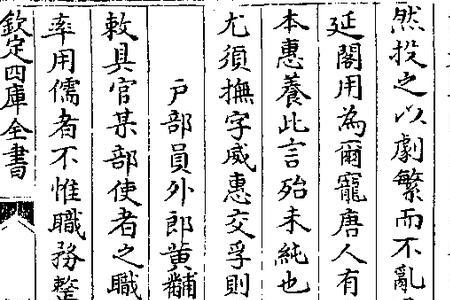 然投之以劇繁而不亂
延閣用為爾寵唐人有
本惠養此言殆未純也
尤須撫字威惠交孚則
戶部員外郎黄黼
敕具官某部使者之職
率用儒者不惟職務整
欽定四庫全書